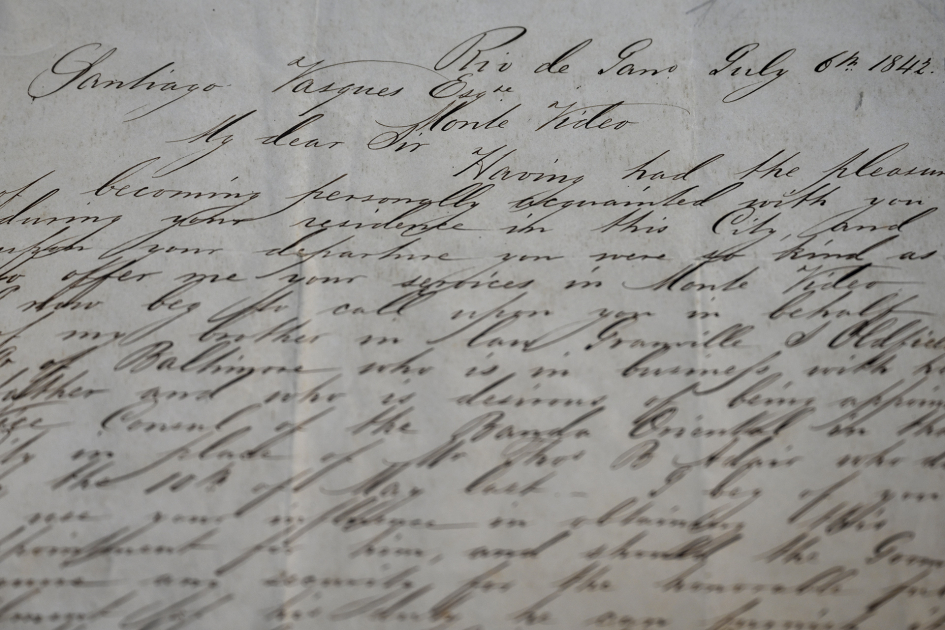 Rio de Jano July 6th 1842.
Santiago Vasques Esqre
Monte Video
My dear Sir
Having had the pleasur
of becoming personally acquainted with you
during your residence in this City, and
upon your departure you were so kind as
to offer me your services in Monte Video
I now beg to call upon you in behalf
of my brother in law Granville S Oldfiel
of Baltimore who is in business with h
father and who is desirous of being appoin
Consul of the Banda Oriental in th
in place of Mr Thos B Adair who d
the 10th of May last - I beg of you
use your influence in obtaining this
appointment for him, and should the Gover
any security for the honorable ful
of his duty he can furnish